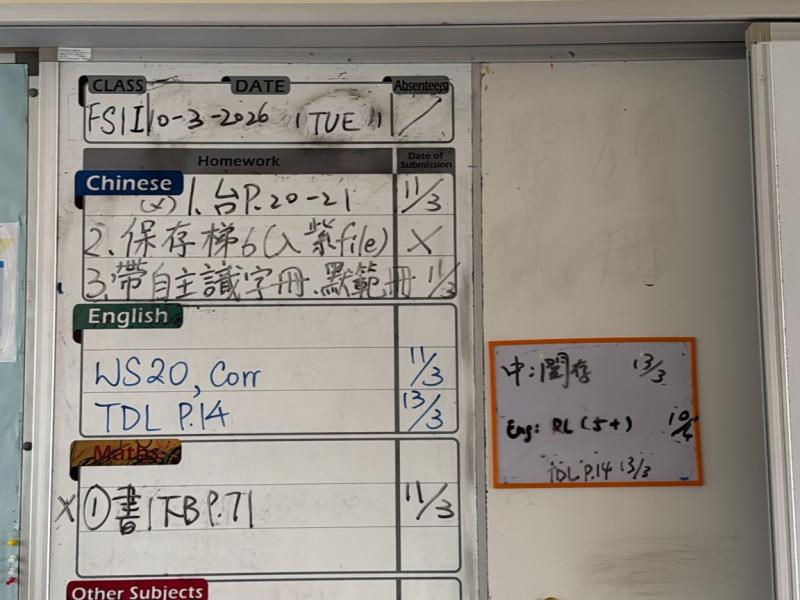 CLASS DATE Absentee(s)
FS1I 10-3-2026 (TUE) /
Homework Date of Submission
Chinese
(x) 1. 台P.20-21 11/3
2. 保存梯6(入紫file) X
3. 帶自主識字冊.默範冊 11/3
English
WS20, Corr 11/3
TDL P.14 13/3
Maths
X ① 書1下B P.71 11/3
Other Subjects
中: 閱存 13/3
Eng: RL (5+) 10/4
TDL P.14 13/3